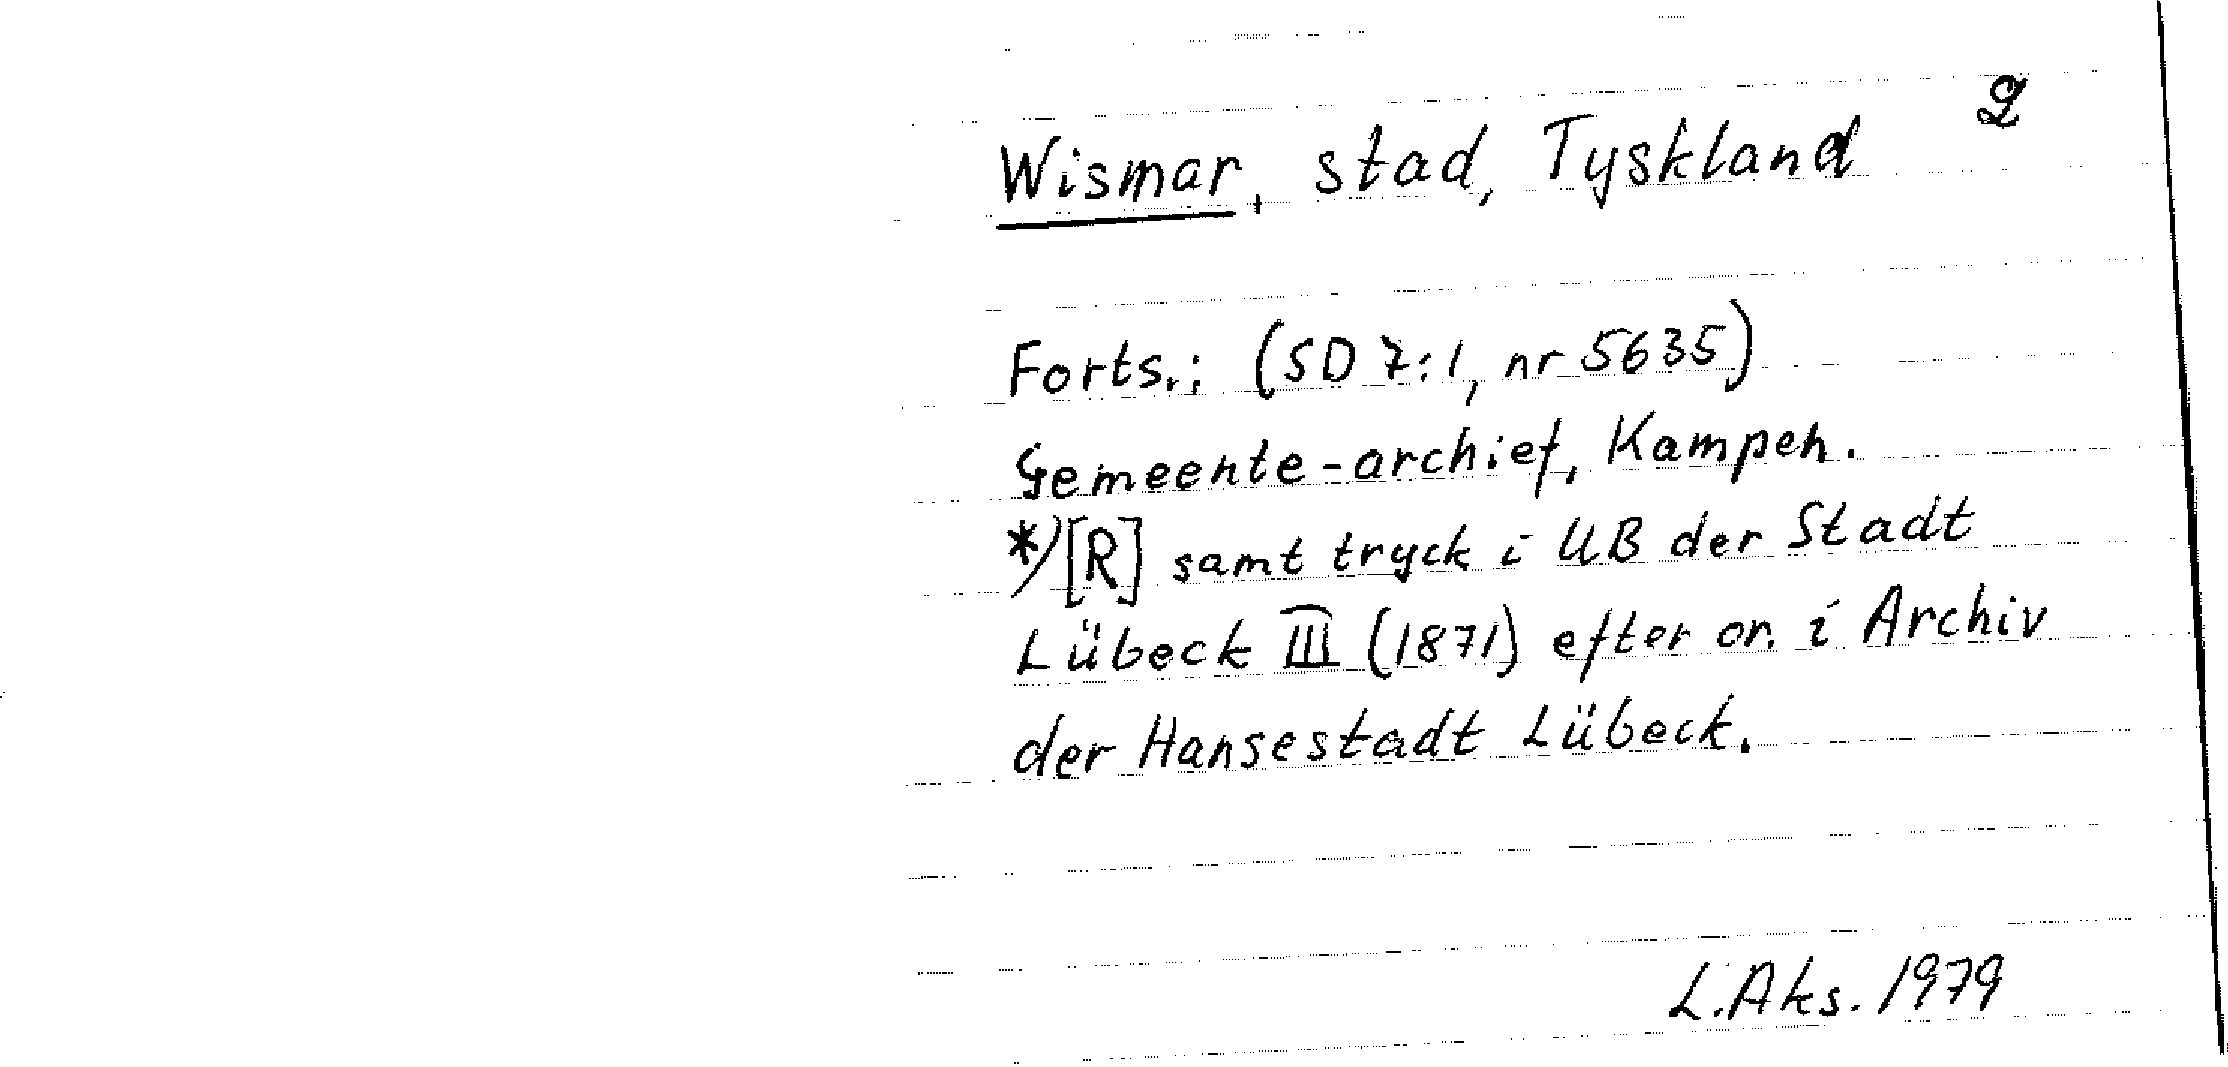 2
Wismar, stad, Tyskland
Forts.: (SD 7:1, nr 5635)
Gemeente-archief, Kampen.
*)[R] samt tryck i UB der Stadt
Lübeck III (1871) efter or. i Archiv
der Hansestadt Lübeck.
L.Aks. 1979